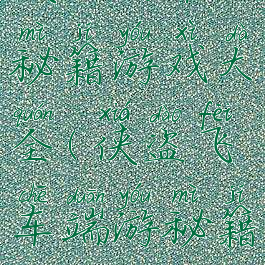 mì jí yóu xì dà
秘籍游戏大
quán xiá dào fēi
全(侠盗飞
chē duān yóu mì jí
车端游秘籍